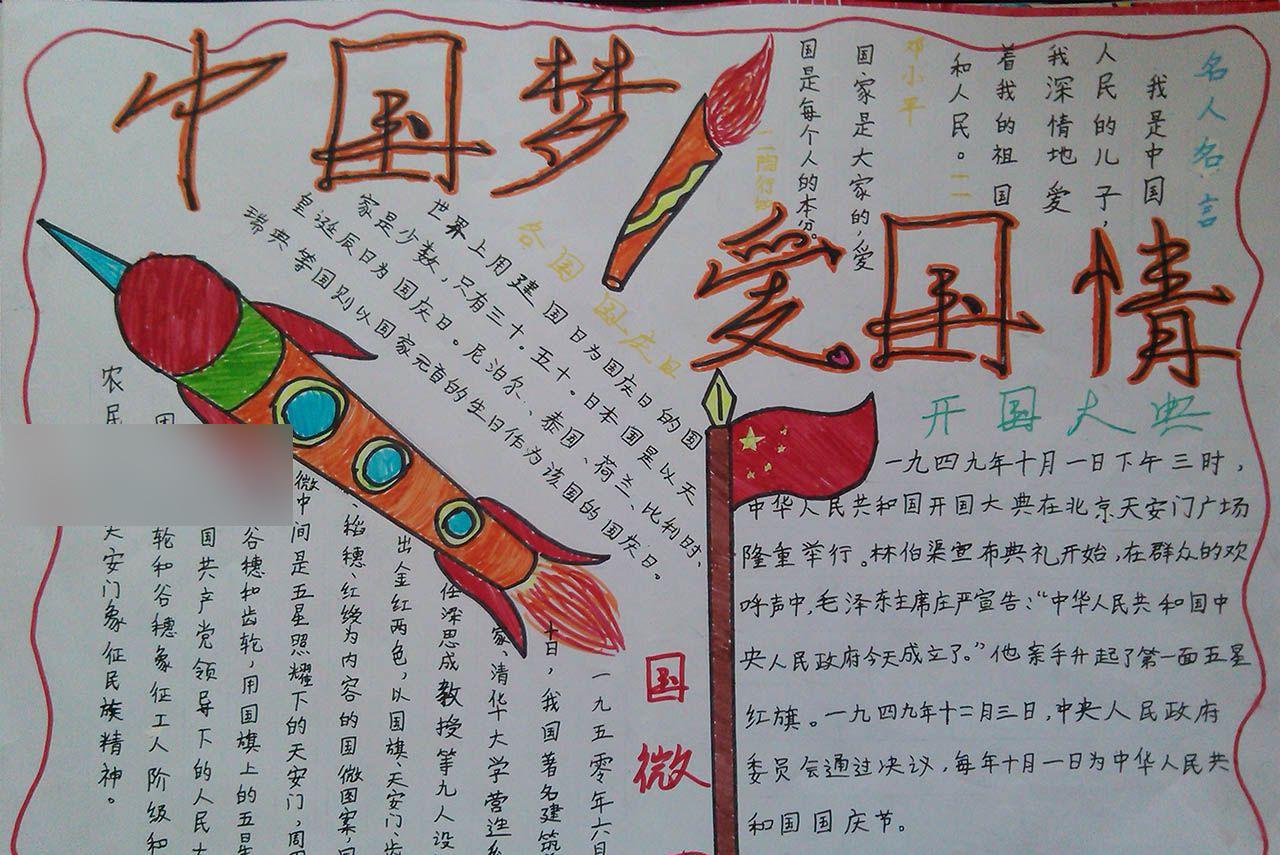 中国梦
爱国情
名人名言
我是中国
人民的儿子，
我深情地爱
着我的祖国
和人民。——
邓小平
国家是大家的，爱
国是每个人的本分。
——陶行知
各国国庆日
世界上用建国日为国庆日的国
家是少数，只有三十。五十。日本国是以天
皇诞辰日为国庆日。尼泊尔、泰国、荷兰、比利时、
瑞典等国则以国家元首的生日作为该国的国庆日。
开国大典
一九四九年十月一日下午三时，
中华人民共和国开国大典在北京天安门广场
隆重举行。林伯渠宣布典礼开始，在群众的欢
呼声中，毛泽东主席庄严宣告：“中华人民共和国中
央人民政府今天成立了。”他亲手升起了第一面五星
红旗。一九四九年十二月三日，中央人民政府
委员会通过决议，每年十月一日为中华人民共
和国国庆节。
国微
一九五零年六
十日，我国著名建筑
家、清华大学营造
任梁思成教授等九人设
出金红两色，以国旗、天安门、齿
、稻穗、红绶为内容的国微图案，
微中间是五星照耀下的天安门，周
谷穗和齿轮，用国旗上的五星
国共产党领导下的人民
轮和谷穗象征工人阶级和
农民
天安门象征民族精神。